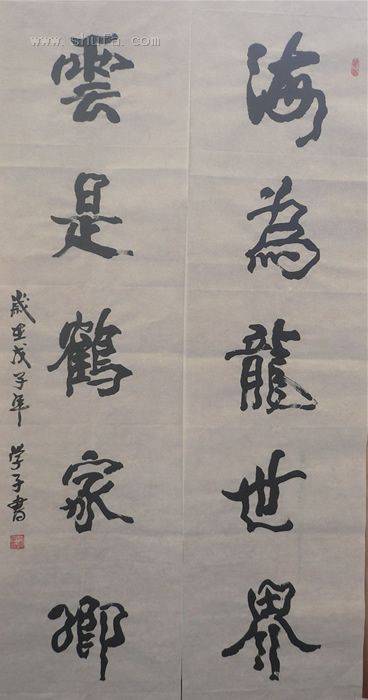 海為龍世界
雲是鶴家鄉
歲在戊子年 学子書
www.shufa.com